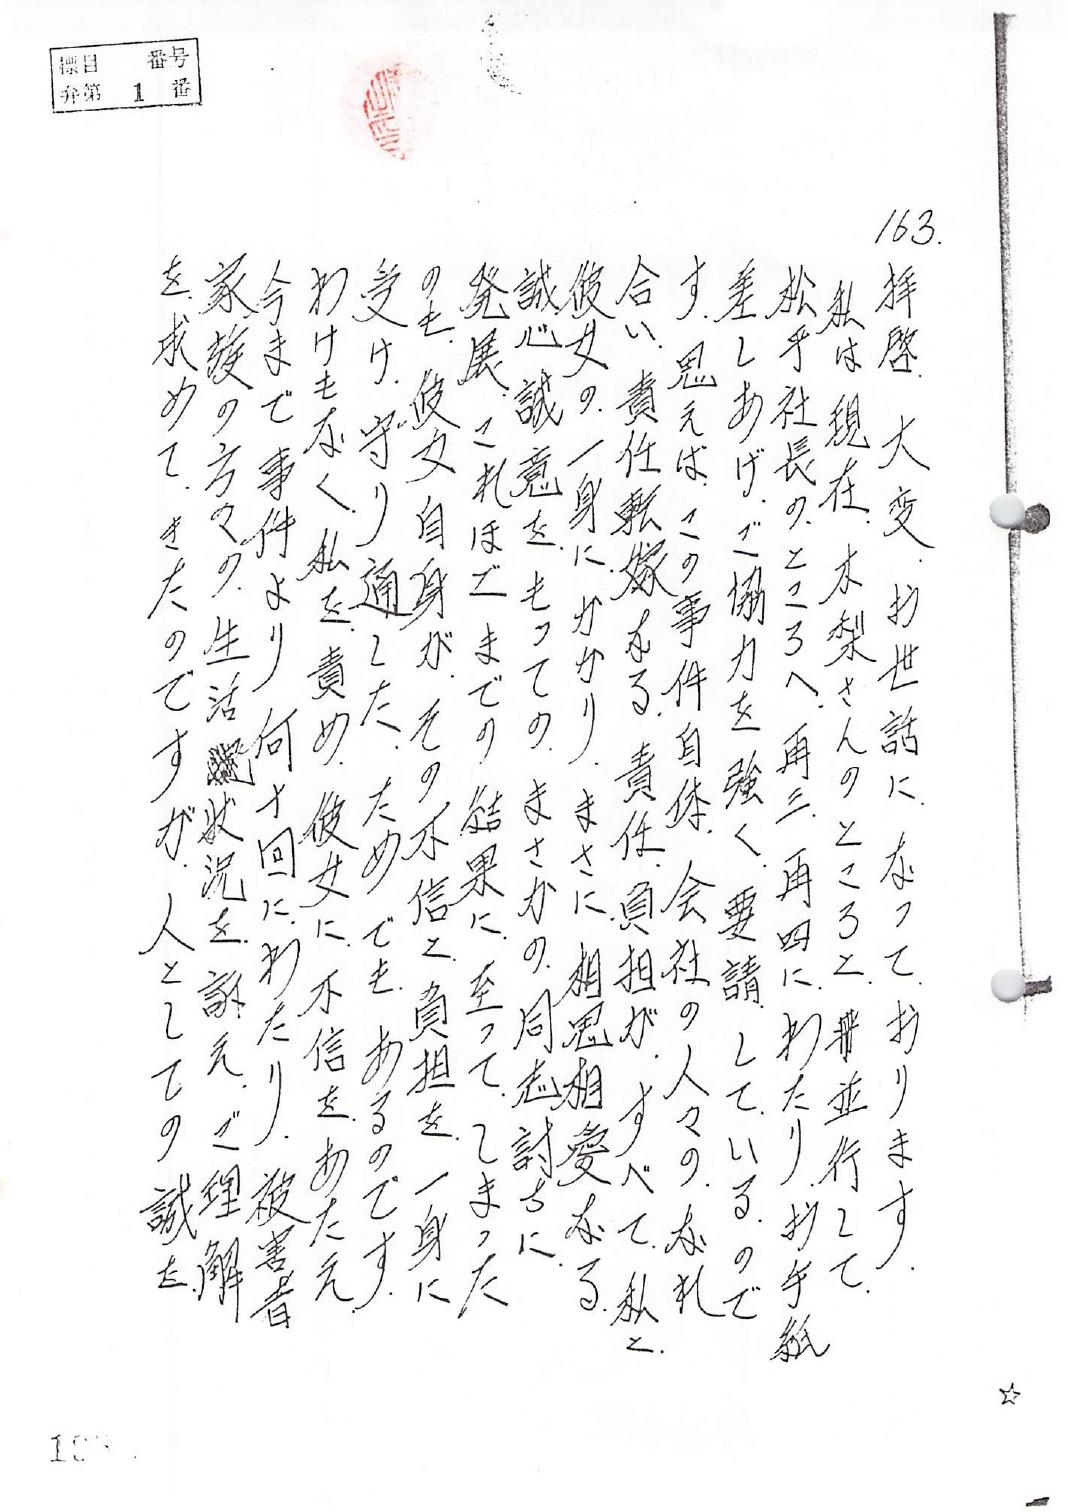 標目 番号
弁第 1 番
163.
拝啓、大変、お世話に、なって、おります。
私は現在、木梨さんのところと、並行して、
松平社長の、ところへ、再三、再四に、わたり、お手紙
差しあげ、ご協力を強く、要請、して、いる、ので
す、思えば、この事件自体、会社の人々の、なれ
合い、責任転嫁なる、責任、負担が、すべて、私と、
彼女の、一身に、かかり、まさに、相思相愛なる、
誠心誠意を、もっての、まさかの、同志討ちに、
発展、これほどまでの結果に、至って、しまった
のも、彼女自身が、その不信と、負担を、一身に
受け、守り通した、ためでも、あるのです。
わけもなく、私を、責め、彼女に、不信を、あたえ、
今まで事件より、何十回に、わたり、被害者
家族の方々の、生活状況を、訴え、ご理解
を、求めて、きたのですが、人としての誠を、
☆